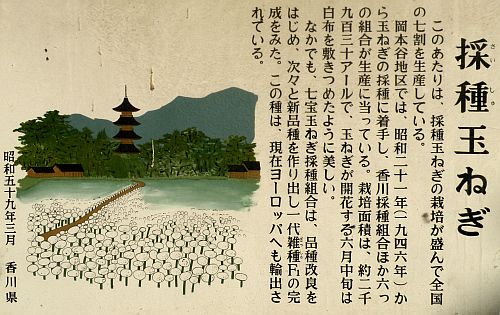 採種玉ねぎ
さいしゅ
このあたりは、採種玉ねぎの栽培が盛んで全国
の七割を生産している。
岡本谷地区では、昭和二十一年(一九四六年)か
ら玉ねぎの採種に着手し、香川採種組合ほか六っ
の組合が生産に当っている。栽培面積は、約二千
九百三十アールで、玉ねぎが開花する六月中旬は
白布を敷きつめたように美しい。
なかでも、七宝玉ねぎ採種組合は、品種改良を
はじめ、次々と新品種を作り出し一代雑種F₁の完
成をみた。この種は、現在ヨーロッパへも輸出さ
れている。
昭和五十九年三月 香川県